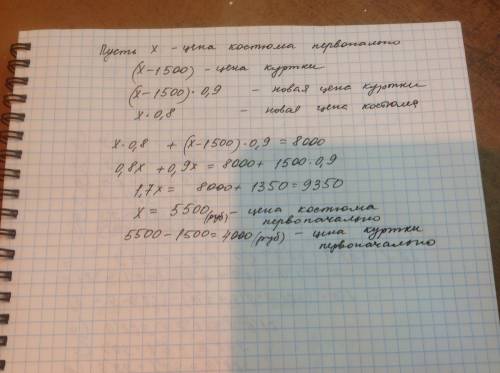 Пусть х - цена костюма первопально
(х-1500) - цена куртки
(х-1500)·0,9 - новая цена куртки
х·0,8 - новая цена костюма
х·0,8 + (х-1500)·0,9 = 8000
0,8х + 0,9х = 8000 + 1500·0,9
1,7х = 8000 + 1350 = 9350
х = 5500 (руб) - цена костюма первоначально
5500 - 1500 = 4000 (руб) - цена куртки первоначально